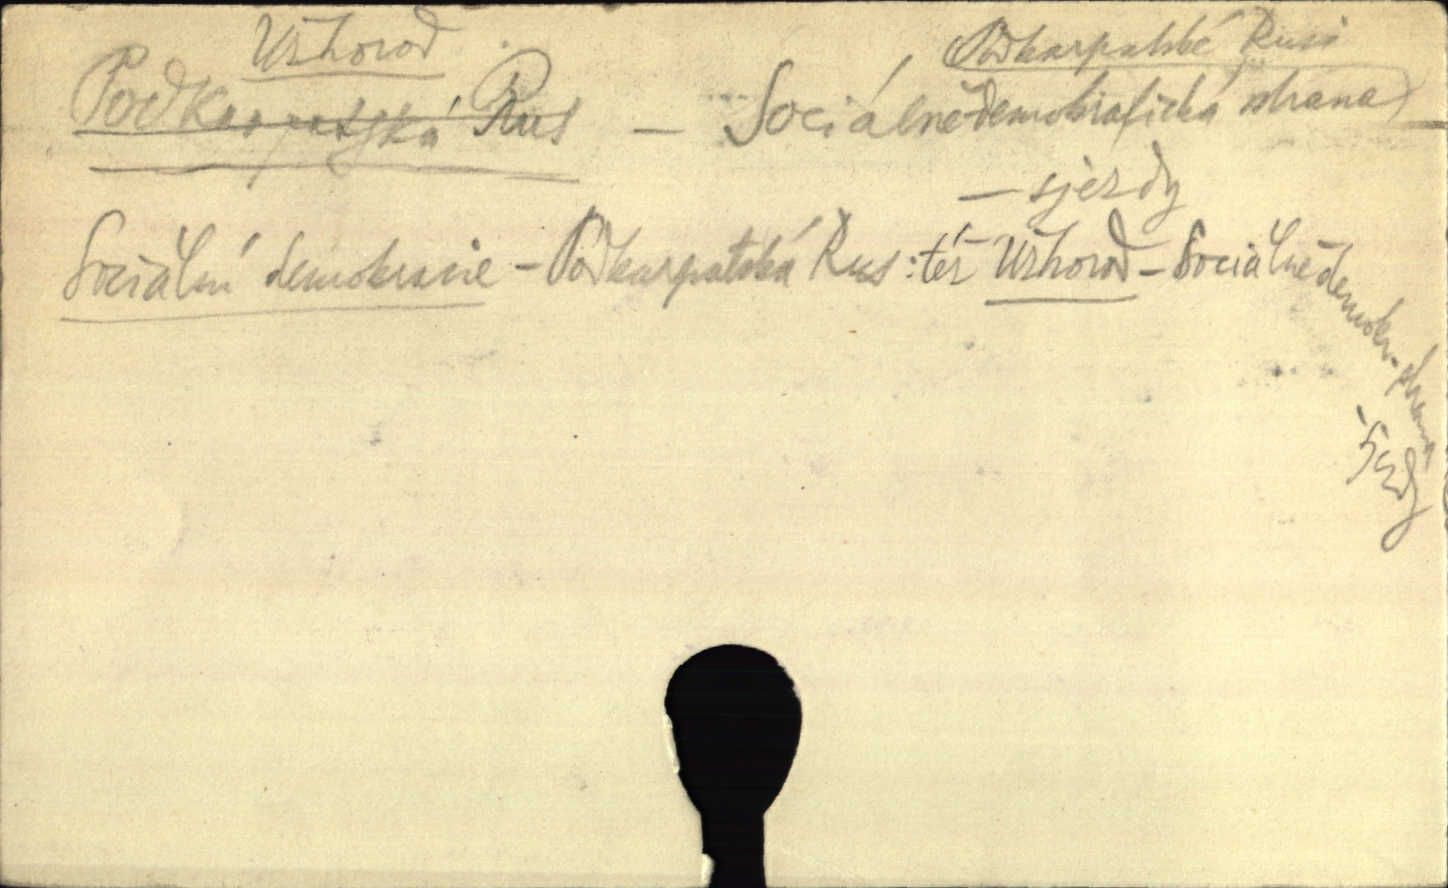 Užhorod
Podkarpatské Rusi
Podkarpatská Rus — Sociálnědemokratická strana
— sjezdy
Sociální demokracie – Podkarpatská Rus: též Užhorod – Sociálnědemokr. strana
- sjezdy